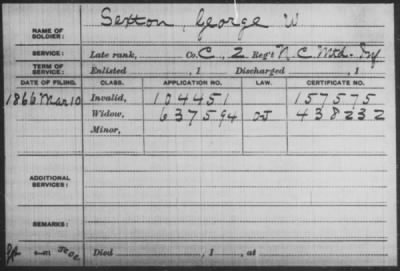 Sexton, George W
NAME OF SOLDIER:
SERVICE: Late rank, Co. C, 2 Reg't N.C. Mtd. Inf
TERM OF SERVICE: Enlisted , 1 Discharged , 1
DATE OF FILING. CLASS. APPLICATION NO. LAW. CERTIFICATE NO.
1866 Mar 10 Invalid, 104451 157575
Widow, 637594 438232
Minor,
ADDITIONAL SERVICES:
REMARKS:
Died , 1 , at